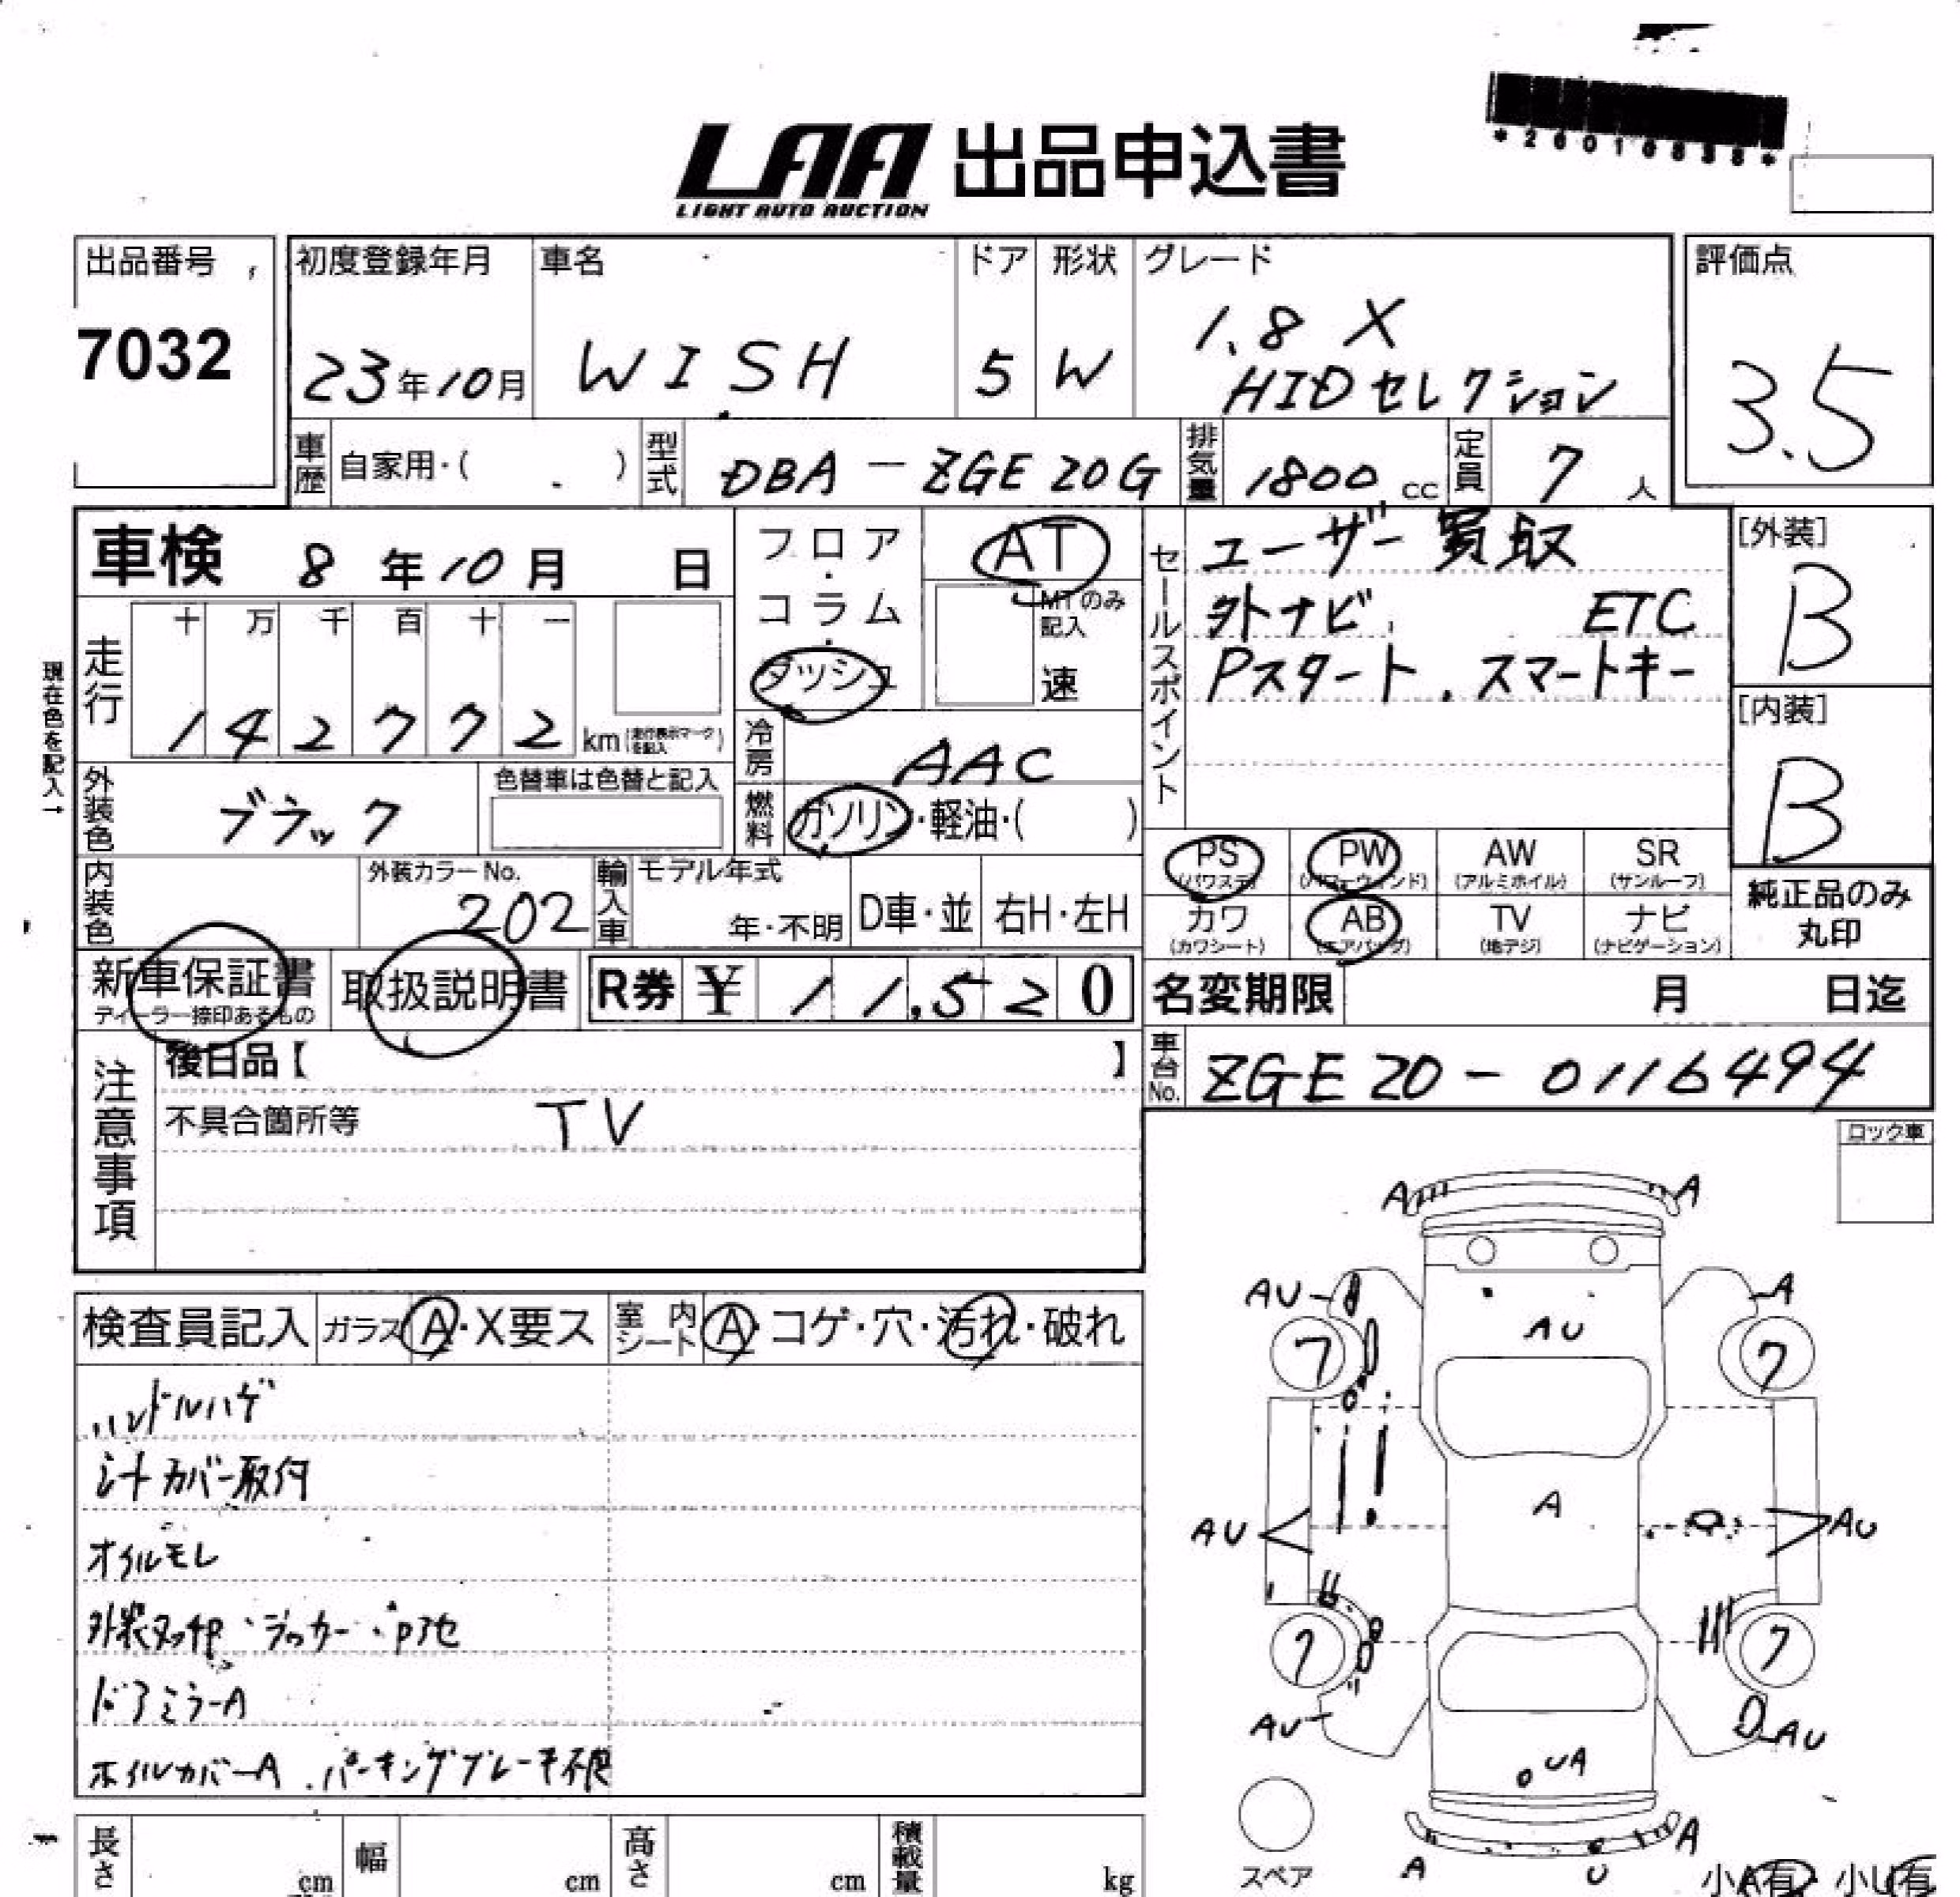 *26016838*
LAA 出品申込書
LIGHT AUTO AUCTION
出品番号
7032
初度登録年月
23年10月
車名
WISH
ドア
5
形状
W
グレード
1.8 X
HIDセレクション
評価点
3.5
車歴
自家用・( )
型式
DBA-ZGE20G
排気量
1800 cc
定員
7 人
車検 8年10月 日
フロア・コラム・ダッシュ
AT
MTのみ記入
速
走行
十 万 千 百 十 一
1 4 2 7 7 2 km(走行表示マークを記入)
現在色を記入→
冷房
AAC
燃料
ガソリン・軽油・( )
外装色
ブラック
色替車は色替と記入
内装色
外装カラーNo.
202
輸入車
モデル年式
年・不明
D車・並
右H・左H
セールスポイント
ユーザー買取
外ナビ ETC
Pスタート.スマートキー
[外装]
B
[内装]
B
PS PW AW SR
(パワステ) (パワーウィンド) (アルミホイル) (サンルーフ)
カワ AB TV ナビ
(カワシート) (エアバッグ) (地デジ) (ナビゲーション)
純正品のみ
丸印
新車保証書
ディーラー捺印あるもの
取扱説明書
R券 ¥ 11,520
名変期限 月 日迄
車台No.
ZGE20-0116494
注意事項
後日品【 】
不具合箇所等 TV
ロック車
検査員記入
ガラス A・X要ス
室内シート A・コゲ・穴・汚れ・破れ
ハンドルハゲ
シートカバー取付
オイルモレ
外装タッチP・ラッカー・Pアセ
ドアミラーA
ホイルカバーA.パーキングブレーキ不良
A A
AU A
AU
7 7
A
AU AU
7 7
AU AU
UA
A
A U
スペア
小A有・小U有
長さ cm
幅 cm
高さ cm
積載量 kg